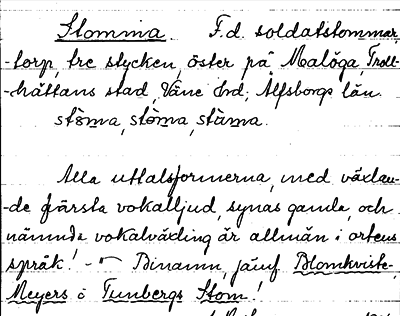 Stomma. F.d. soldatstommar,
-torp, tre stycken, öster på Malöga, Troll-
-hättans stad, Väne hd, Älfsborgs län.
stȯma, stöma, stàma.
Alla uttalsformerna, med växlan-
-de första vokalljud, synas gamla, och
nämnda vokalväxling är allmän i ortens
språk! - Binamn, jämf. Blomkvists-,
Meyers o Tunbergs Stom!